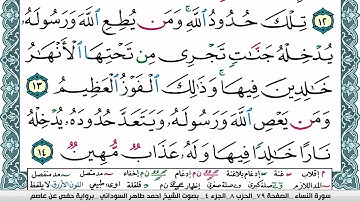 ١٢ تِلْكَ حُدُودُ ٱللَّهِ ۚ وَمَن يُطِعِ ٱللَّهَ وَرَسُولَهُۥ
يُدْخِلْهُ جَنَّٰتٍ تَجْرِى مِن تَحْتِهَا ٱلْأَنْهَٰرُ
خَٰلِدِينَ فِيهَا ۚ وَذَٰلِكَ ٱلْفَوْزُ ٱلْعَظِيمُ ١٣
وَمَن يَعْصِ ٱللَّهَ وَرَسُولَهُۥ وَيَتَعَدَّ حُدُودَهُۥ يُدْخِلْهُ
نَارًا خَٰلِدًا فِيهَا وَلَهُۥ عَذَابٌ مُّهِينٌ ١٤
سورة النساء - الصفحة ٧٩ الحزب ٨ الجزء ٤ بصوت الشيخ أحمد طاهر السوداني - برواية حفص عن عاصم